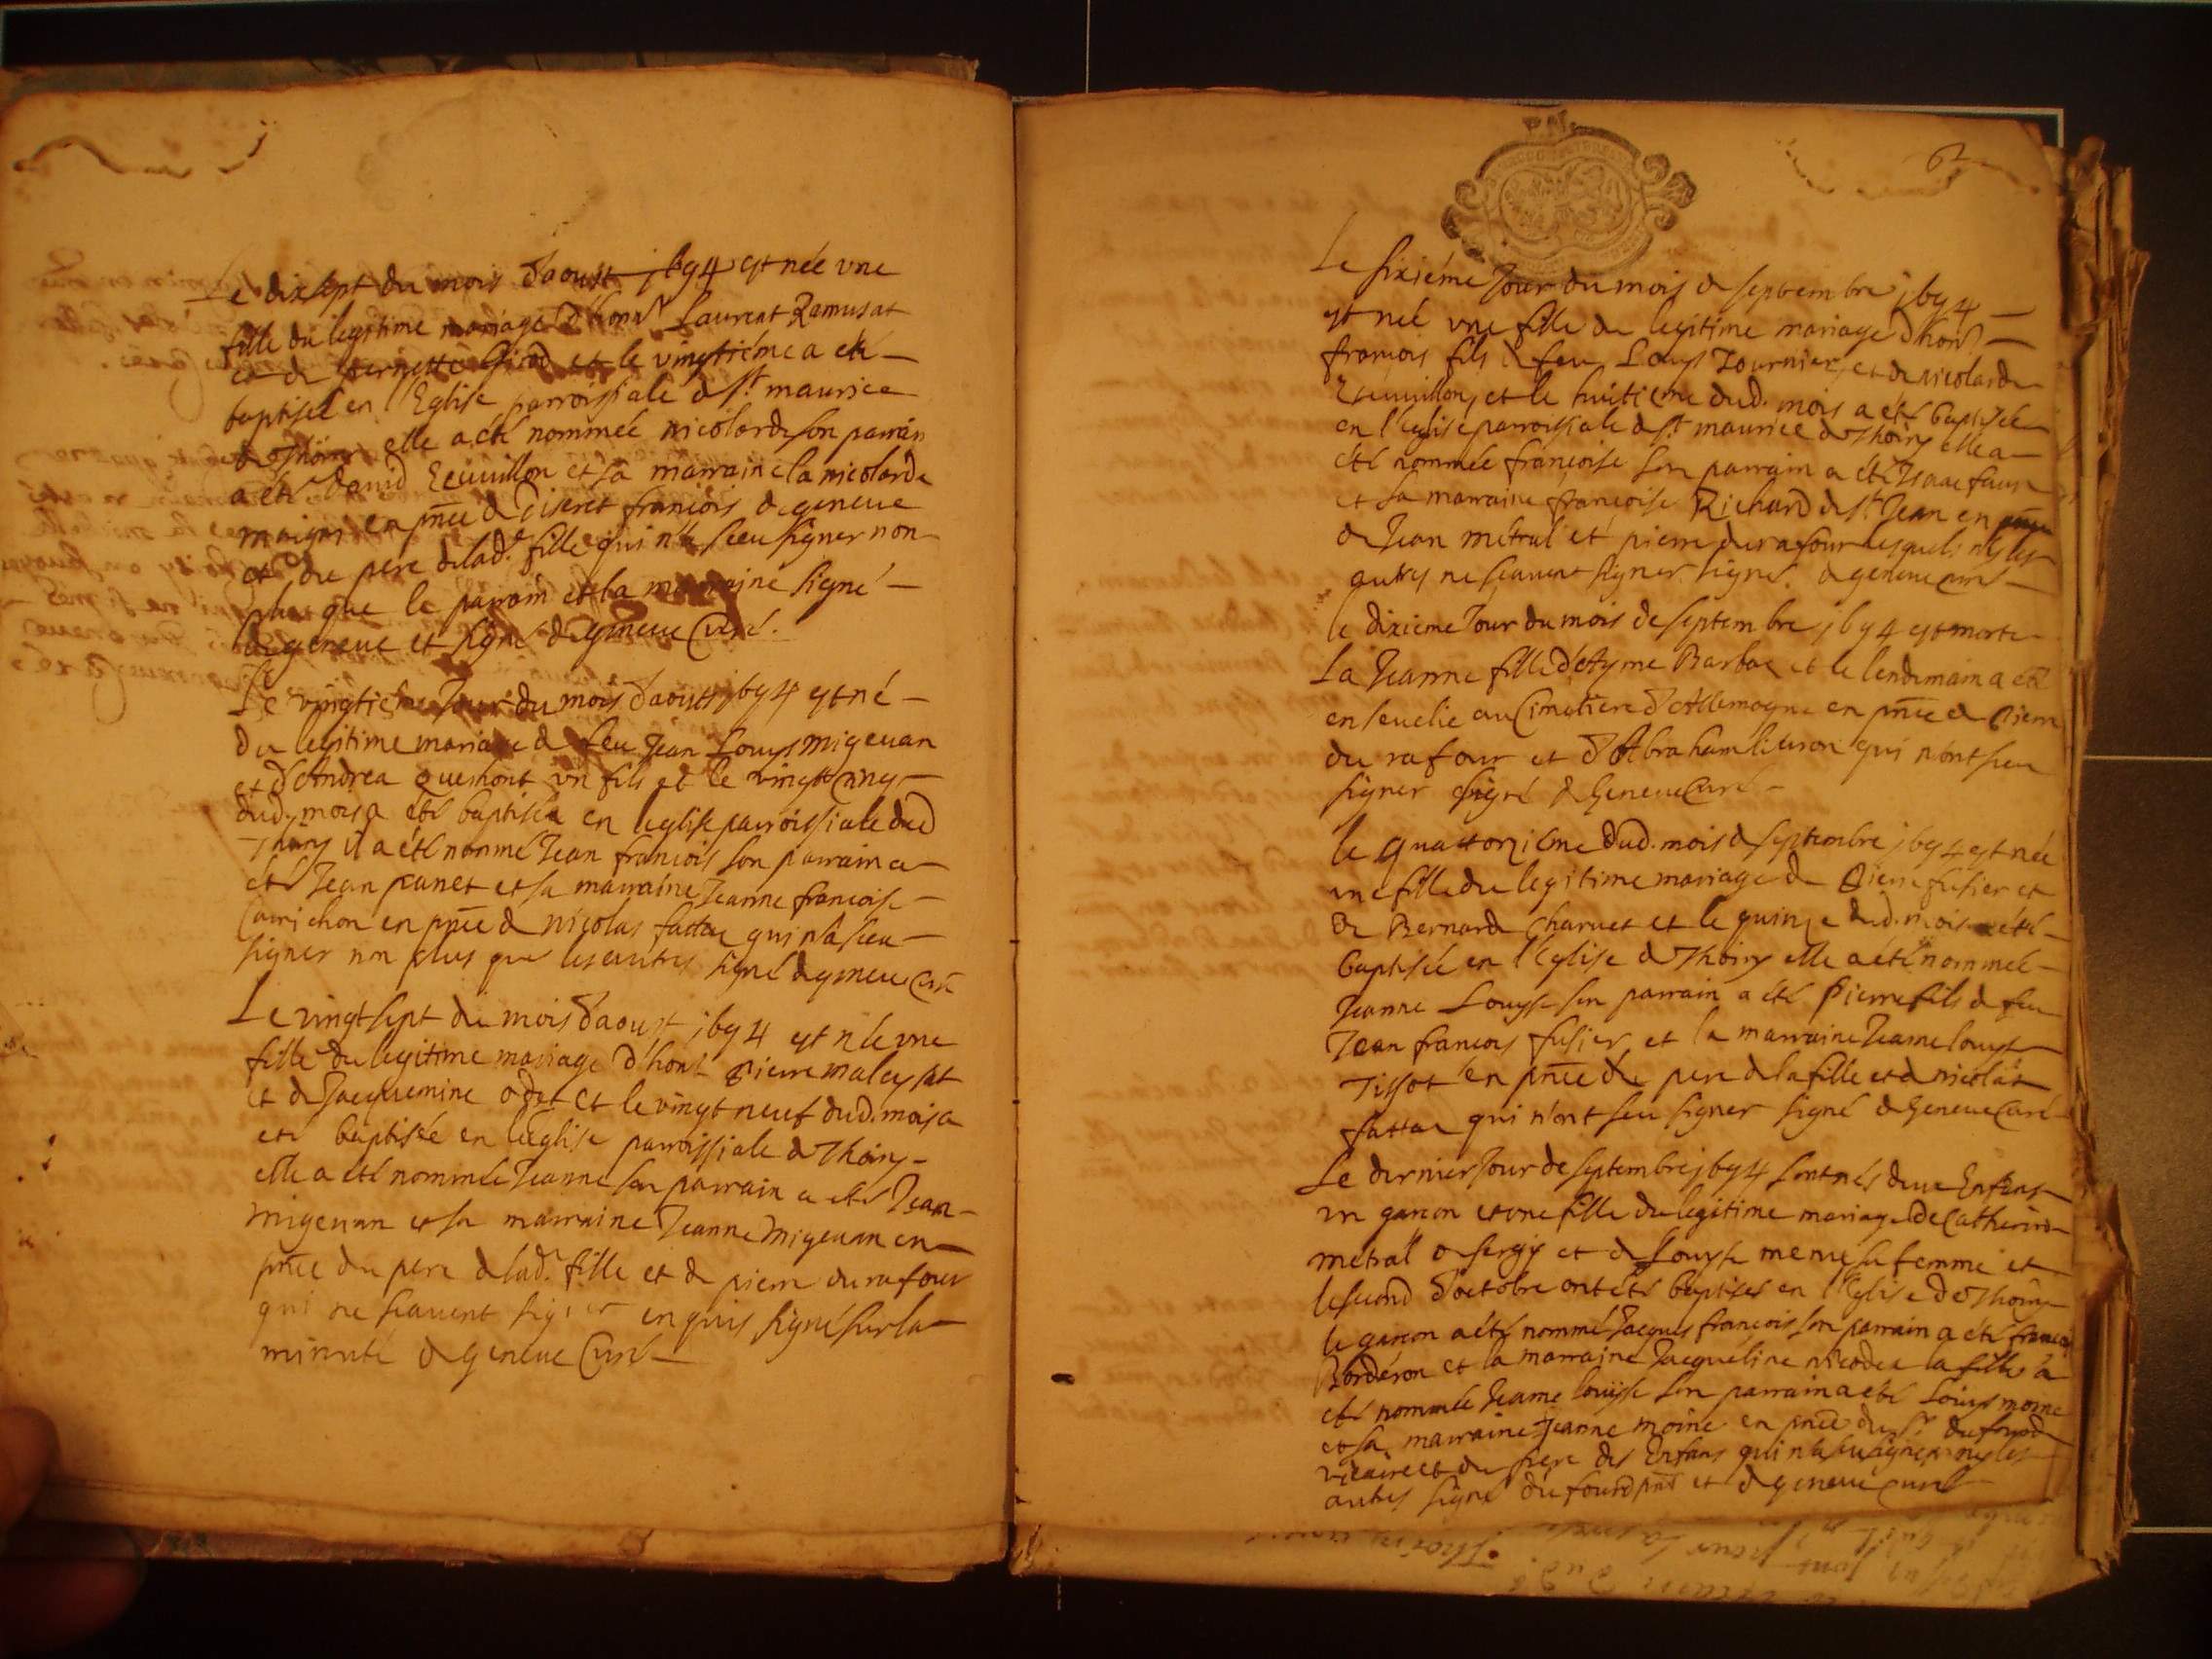 Le dixsept du mois d'aoust j694 est née une
fille du legitime mariage d'hon.^ Laurent Ramusat
et de pernette Girod et le vingtiéme a eté
baptisée en l'Eglise parroissiale de s^t. maurice
de thoiry elle a eté nommée nicolarde son parrain
a eté david Ecuuillon et sa marraine la nicolarde
en pñce de discret francois de geneue
et du pere de lad^e. fille qui n'a sceu signer non
plus que le parrain et la marraine signé
de geneue et signé de geneue Curé.
Le vingtiéme Jour du mois d'aoust j694 est né
du legitime mariage de feu Jean Louys migeuan
et d'Andrea quemont un fils et le vingt cinq
dud. mois a eté baptisé en l'eglise parroissiale dud
Thoiry il a eté nommé Jean francois son parrain a
eté Jean panet et sa marraine Jeanne francoise
Carrichon en pñce de nicolas fattar qui n'a sceu
signer non plus que les autres signé de geneue Curé
Le vingt sept du mois d'aoust j694 est née une
fille du legitime mariage d'hon^t pierre malcysat
et de Jacquemine odet et le vingt neuf dud. mois a
eté baptisée en l'eglise parroissiale de Thoiry
elle a eté nommée Jeanne son parrain a eté Jean
migeuan et sa marraine Jeanne Migeuan en
pñce du pere de lad^e. fille et de pierre du rafour
qui ne scauent signer enquis signé sur la
minute de Geneue Curé
62
Le sixiéme Jour du mois de septembre j694
est née une fille du legitime mariage d'hon^
francois fils de feu Louys Tournier et de nicolarde
Ecuuillon, et le huitiéme dud. mois a eté baptisée
en l'eglise parroissiale de s^t maurice de Thoiry elle a
eté nommée francoise son parrain a eté Isaac
et sa marraine francoise Richard de s^t. Jean en pñce
de Jean métral et pierre du rafour lesquels ny les
autres ne scauent signer signé. de geneue curé
le dixiéme Jour du mois de septembre j694 est morte
La Jeanne fille d'Ayme Barbac et le lendemain a eté
enseuelie au Cimetiere d'Allemogne en pñce de pierre
du rafour et d'Abraham qui n'ont sceu
signer signé de Geneue Curé
le quattorziéme dud. mois de septembre j694 est née
une fille du legitime mariage de pierre fusier et
de Bernarde Charuet et le quinze dud. mois a eté
baptisée en l'Eglise de Thoiry elle a eté nommée
Jeanne Louyse son parrain a eté pierre fils de feu
Jean francois fusier, et la marraine Jeanne louyse
Tissot en pñce du pere de la fille et de nicolas
fattar qui n'ont seu signer signé de Geneue Curé
Le dernier Jour de septembre j694 sont nés deux Enfans
un garcon et une fille du legitime mariage de Catherin
métral de sergy et de Louyse sa femme et
le second d'octobre ont eté baptisés en l'Eglise de Thoiry
le garcon a eté nommé Jacques francois son parrain a eté francois
Borderon et la marraine Jacqueline nicoder la fille a
eté nommée Jeanne louyse son parrain a eté Louys moine
et sa marraine Jeanne moine en pñce du s^r du found
vicaire et du pere des Enfans qui n'a sceu signer ny les
autres signé du found pñt et de geneue curé